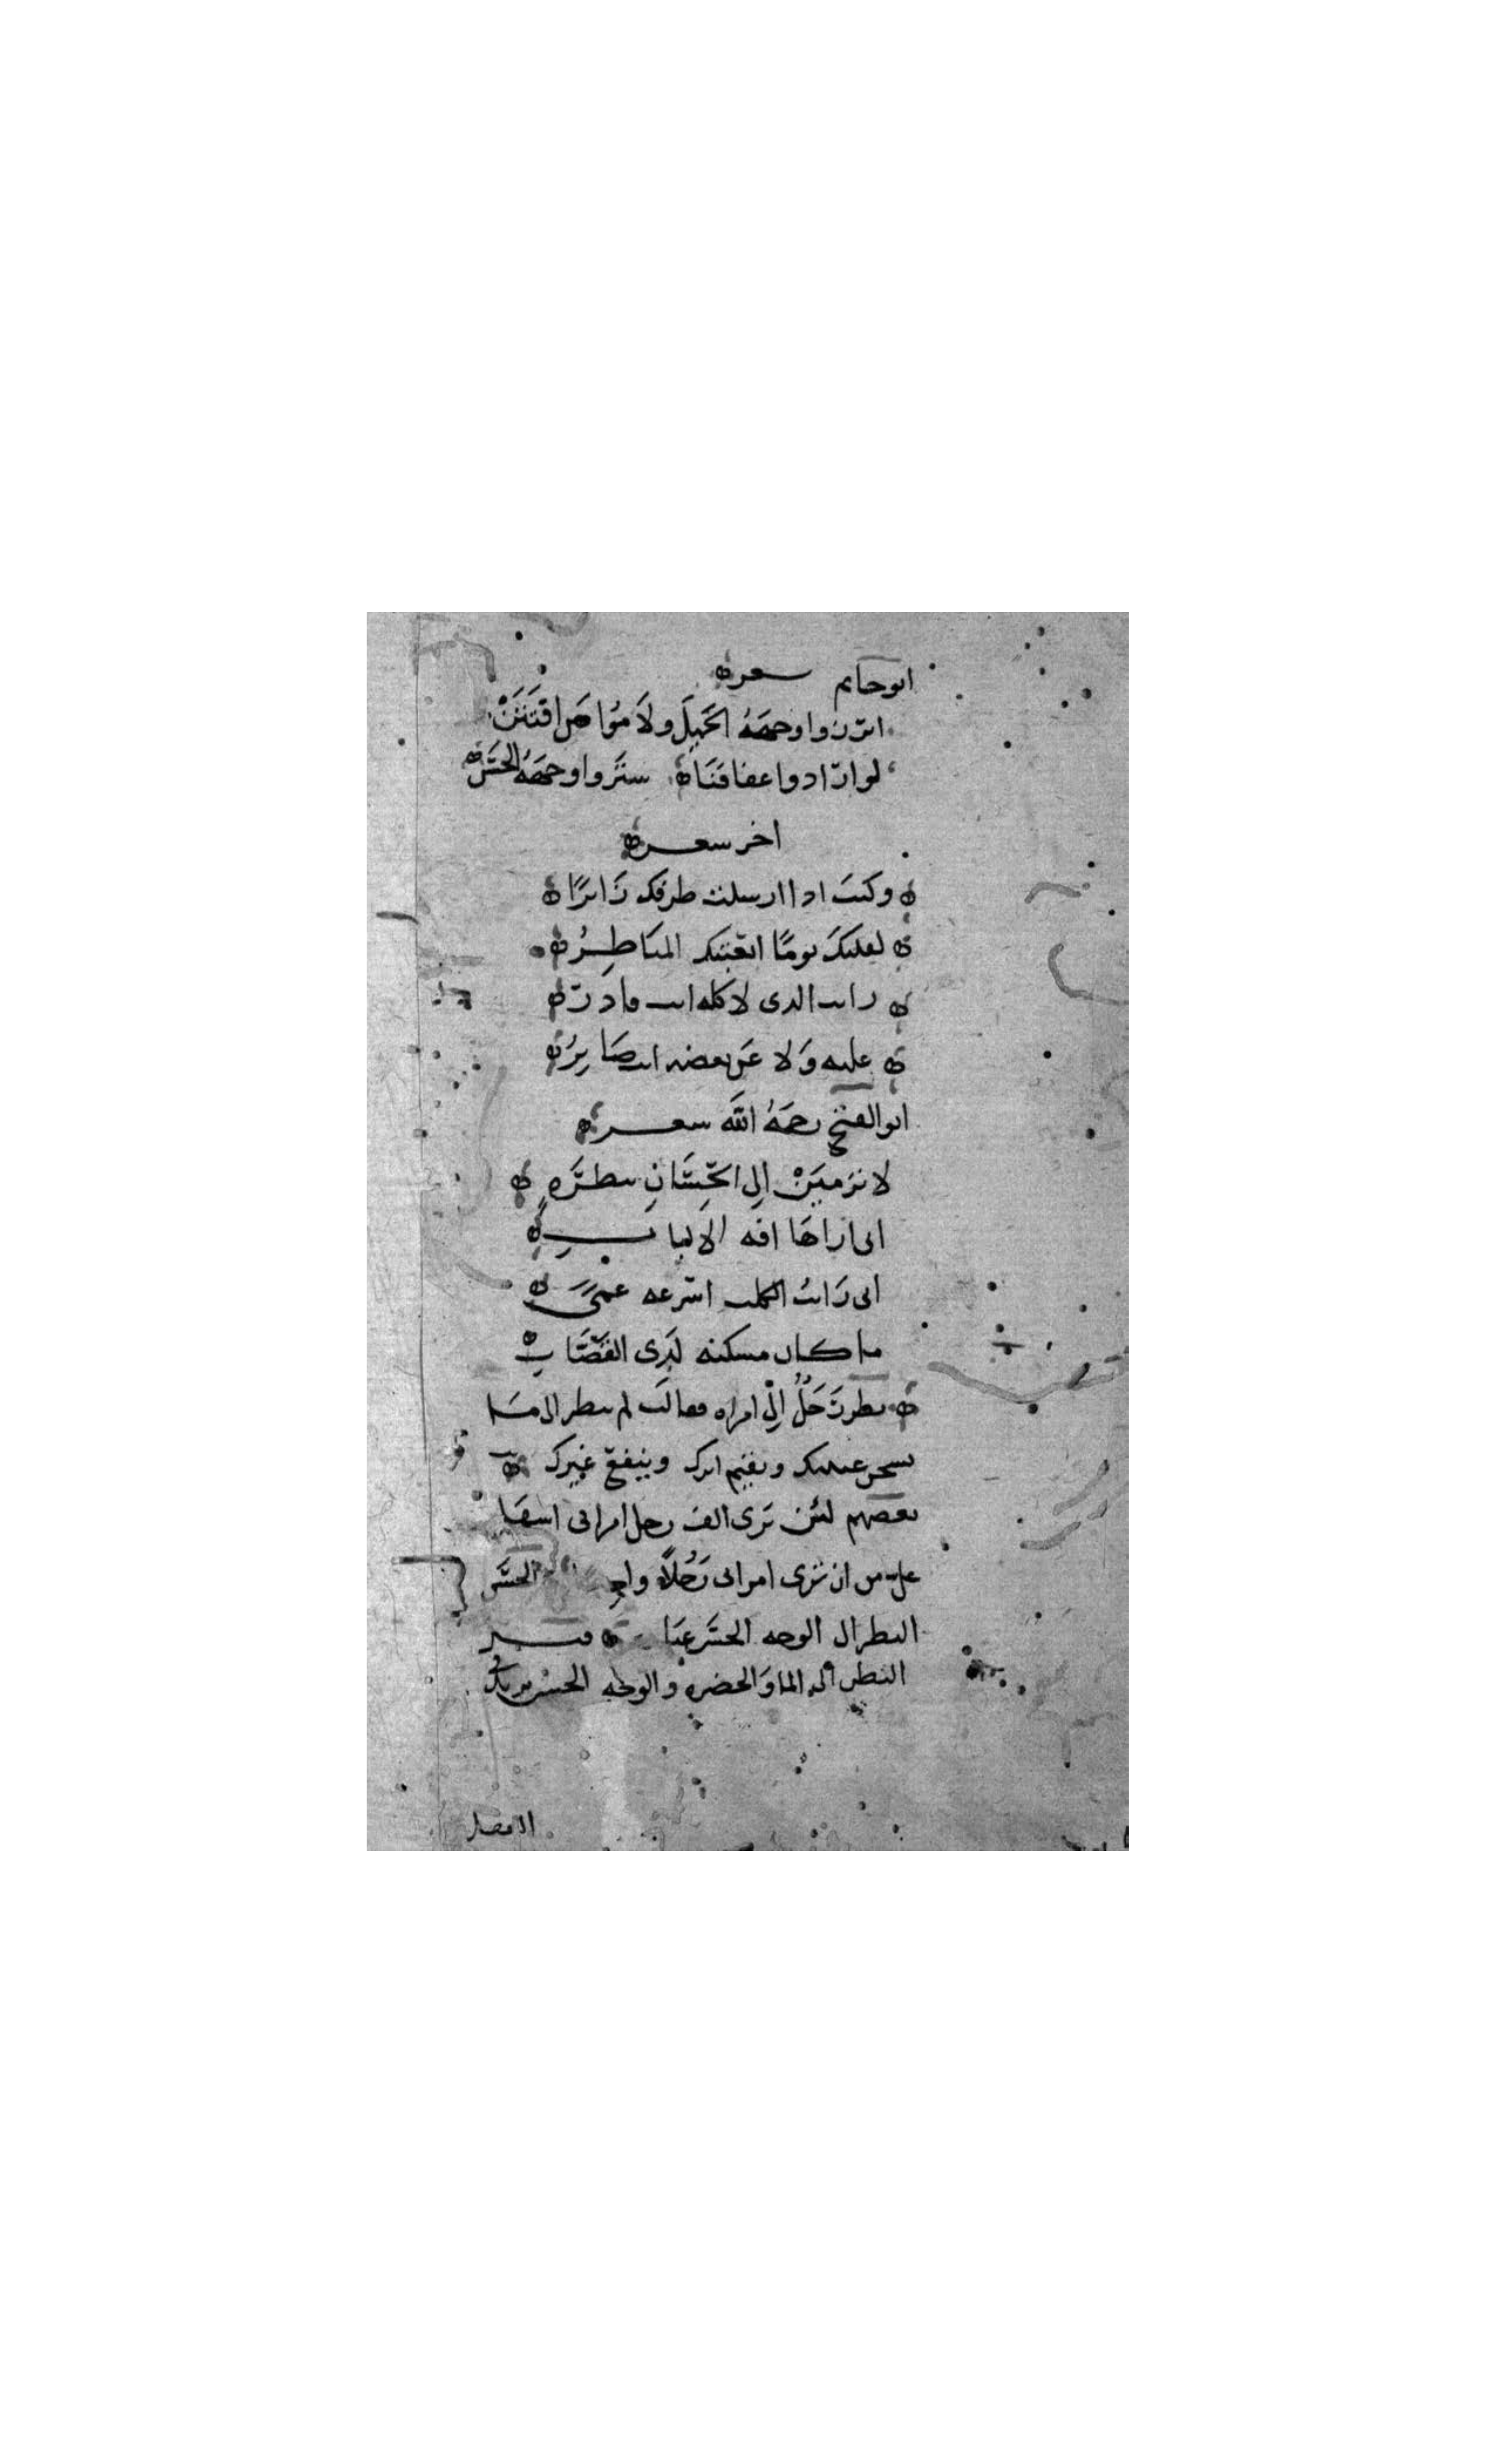 ابو حاتم شعر
ابرزوا وجهه الجميل ولاموا من افتتن
لو ارادوا عفافنا ستروا وجهه الحسن
اخر شعر
وكنت اذا ارسلت طرفك زائرًا
لقلبك يومًا اتعبتك المناظر
رايت الذى لا كله انت قادر
عليه ولا عن بعضه انت صابر
ابو الفتح رحمه الله شعر
لا ترمين الى الحسان بنظرة
انى اراها افة الالباب
انى رايت الكلب اسرعه عمى
ما كان مسكنه لدى القصاب
نظر رجل الى امراه فقالت لم تنظر الى ما
يسخن عينيك ويقيم ايرك وينفع غيرك
بعضهم لئن ترى الف رجل امراتى اسهل
على من ان ترى امراتى رجلًا الحسن
النظر الى الوجه الحسن قيل
النظر الى الما والخضرة والوجه الحسن
الابصار